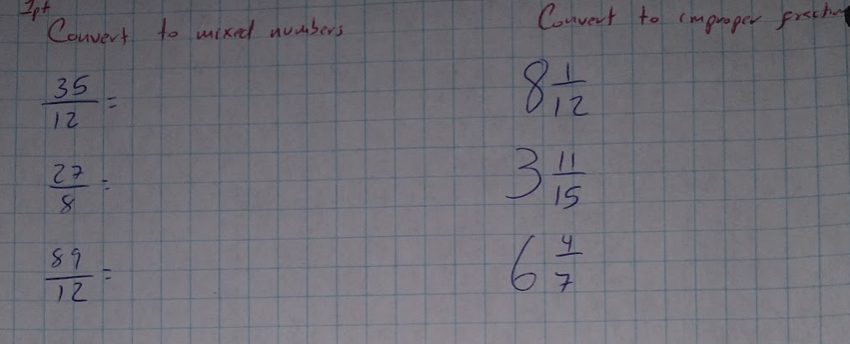 1pt
Convert to mixed numbers
35/12 =
27/8 =
89/12 =
Convert to improper
8 1/12
3 11/15
6 4/7